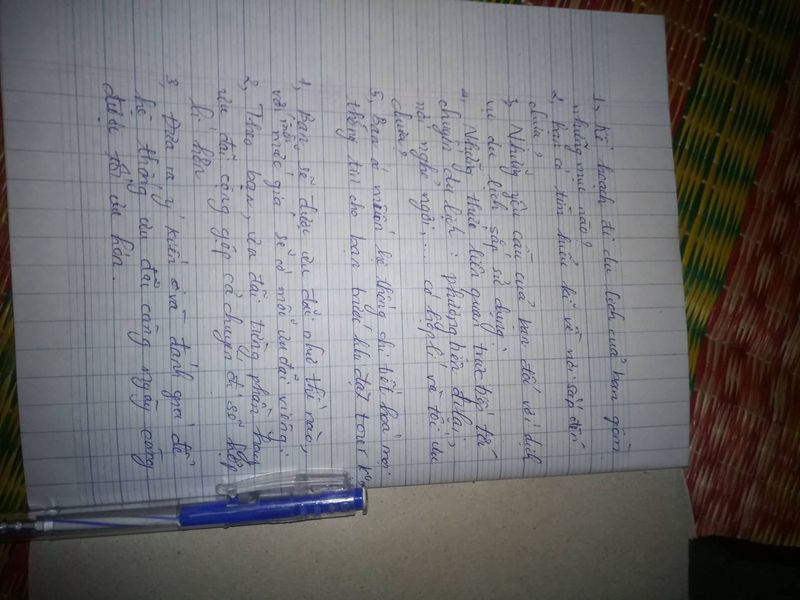 1, Kế hoạch đi du lịch của bạn gồm
những mục nào?
2, bạn có tìm hiểu kĩ về nơi sắp đến
chưa?
3, Những yêu cầu của bạn đối với dịch
vụ du lịch sắp sử dụng
4, Những thứ liên quan trực tiếp tới
chuyến du lịch: phương tiện đi lại,
nơi nghỉ ngơi,.... có hợp lí và tối ưu
chưa?
5, Bạn có muốn hệ thống chi tiết hoá mọi
thông tin cho bạn trước khi đặt tour k
1, Bạn sẽ được ưu đãi như thế nào,
với mỗi mức giá sẽ có mỗi ưu đãi riêng.
2, Theo bạn, ưu đãi từng phần hay
ưu đãi cộng gộp cả chuyến đi sẽ hợp
lí hơn
3, Đưa ra ý kiến và đánh giá để
hệ thống ưu đãi càng ngày càng
được tối ưu hơn.